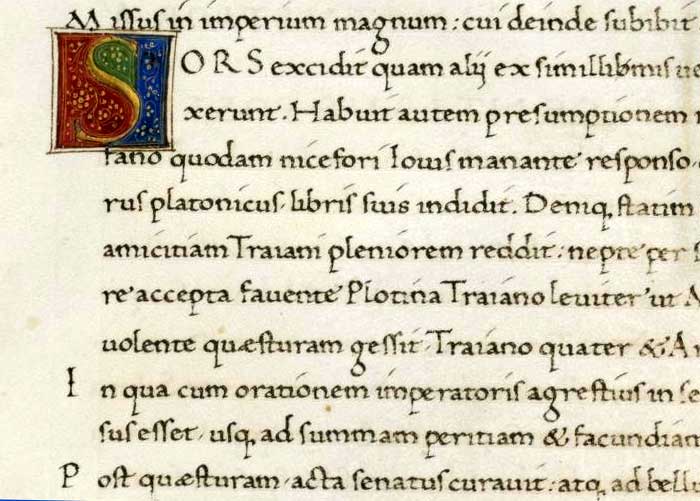 Missus in imperium magnum: cui deinde subibit
SORS excidit quam alij ex simillibmis
xerunt. Habuit autem presumptionem
fano quodam nicefori Iouis manante responso
rus platonicus libris suis indidit. Deniq, statim
amicitiam Traiani pleniorem reddit: nepte per
re accepta fauente Plotina Traiano leuiter ut
uolente quæsturam gessit Traiano quater &
In qua cum orationem imperatoris agrestius in
sus esset, usq, ad summam peritiam & facundiam
Post quæsturam acta senatus curauit: atq, ad bellu